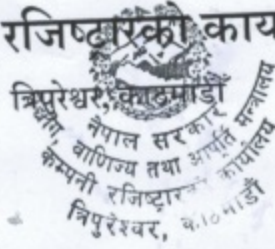 रजिष्टारको काय
त्रिपुरेश्वर, काठमाडौं
नेपाल सरकार
वाणिज्य तथा आपूर्ति मन्त्रालय
कम्पनी रजिष्ट्रारको कार्यालय
त्रिपुरेश्वर, काठमाडौं